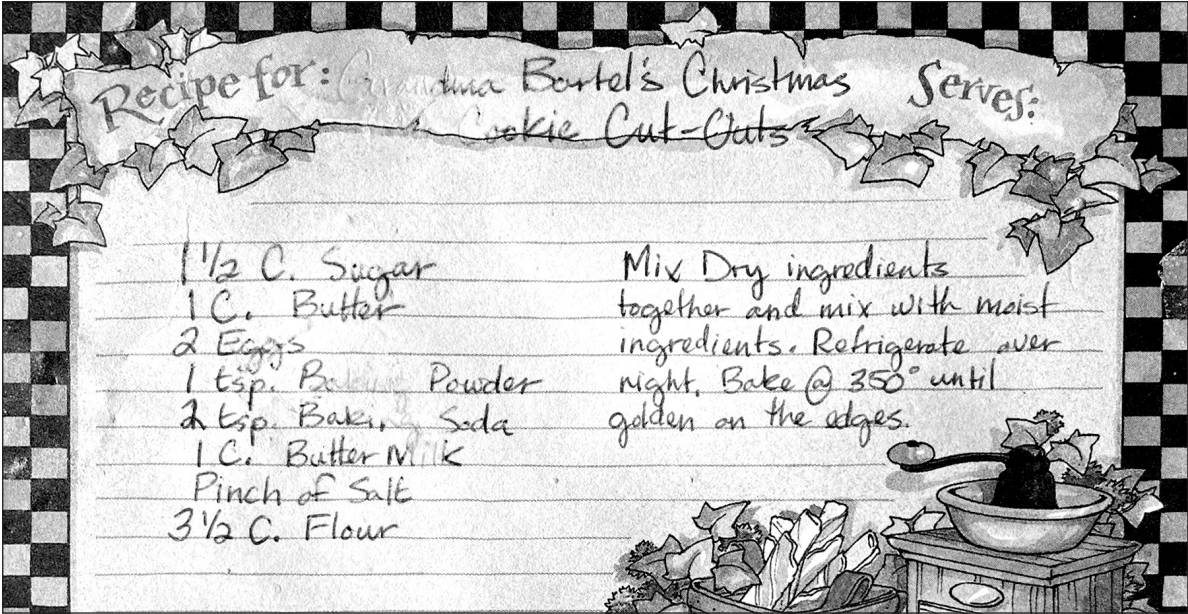 Recipe for: Grandma Bartel's Christmas
Cookie Cut-Outs
Serves:
1 1/2 C. Sugar
1 C. Butter
2 Eggs
1 tsp. Baking Powder
2 tsp. Baking Soda
1 C. Butter Milk
Pinch of Salt
3 1/2 C. Flour
Mix Dry ingredients
together and mix with moist
ingredients. Refrigerate over
night. Bake @ 350° until
golden on the edges.